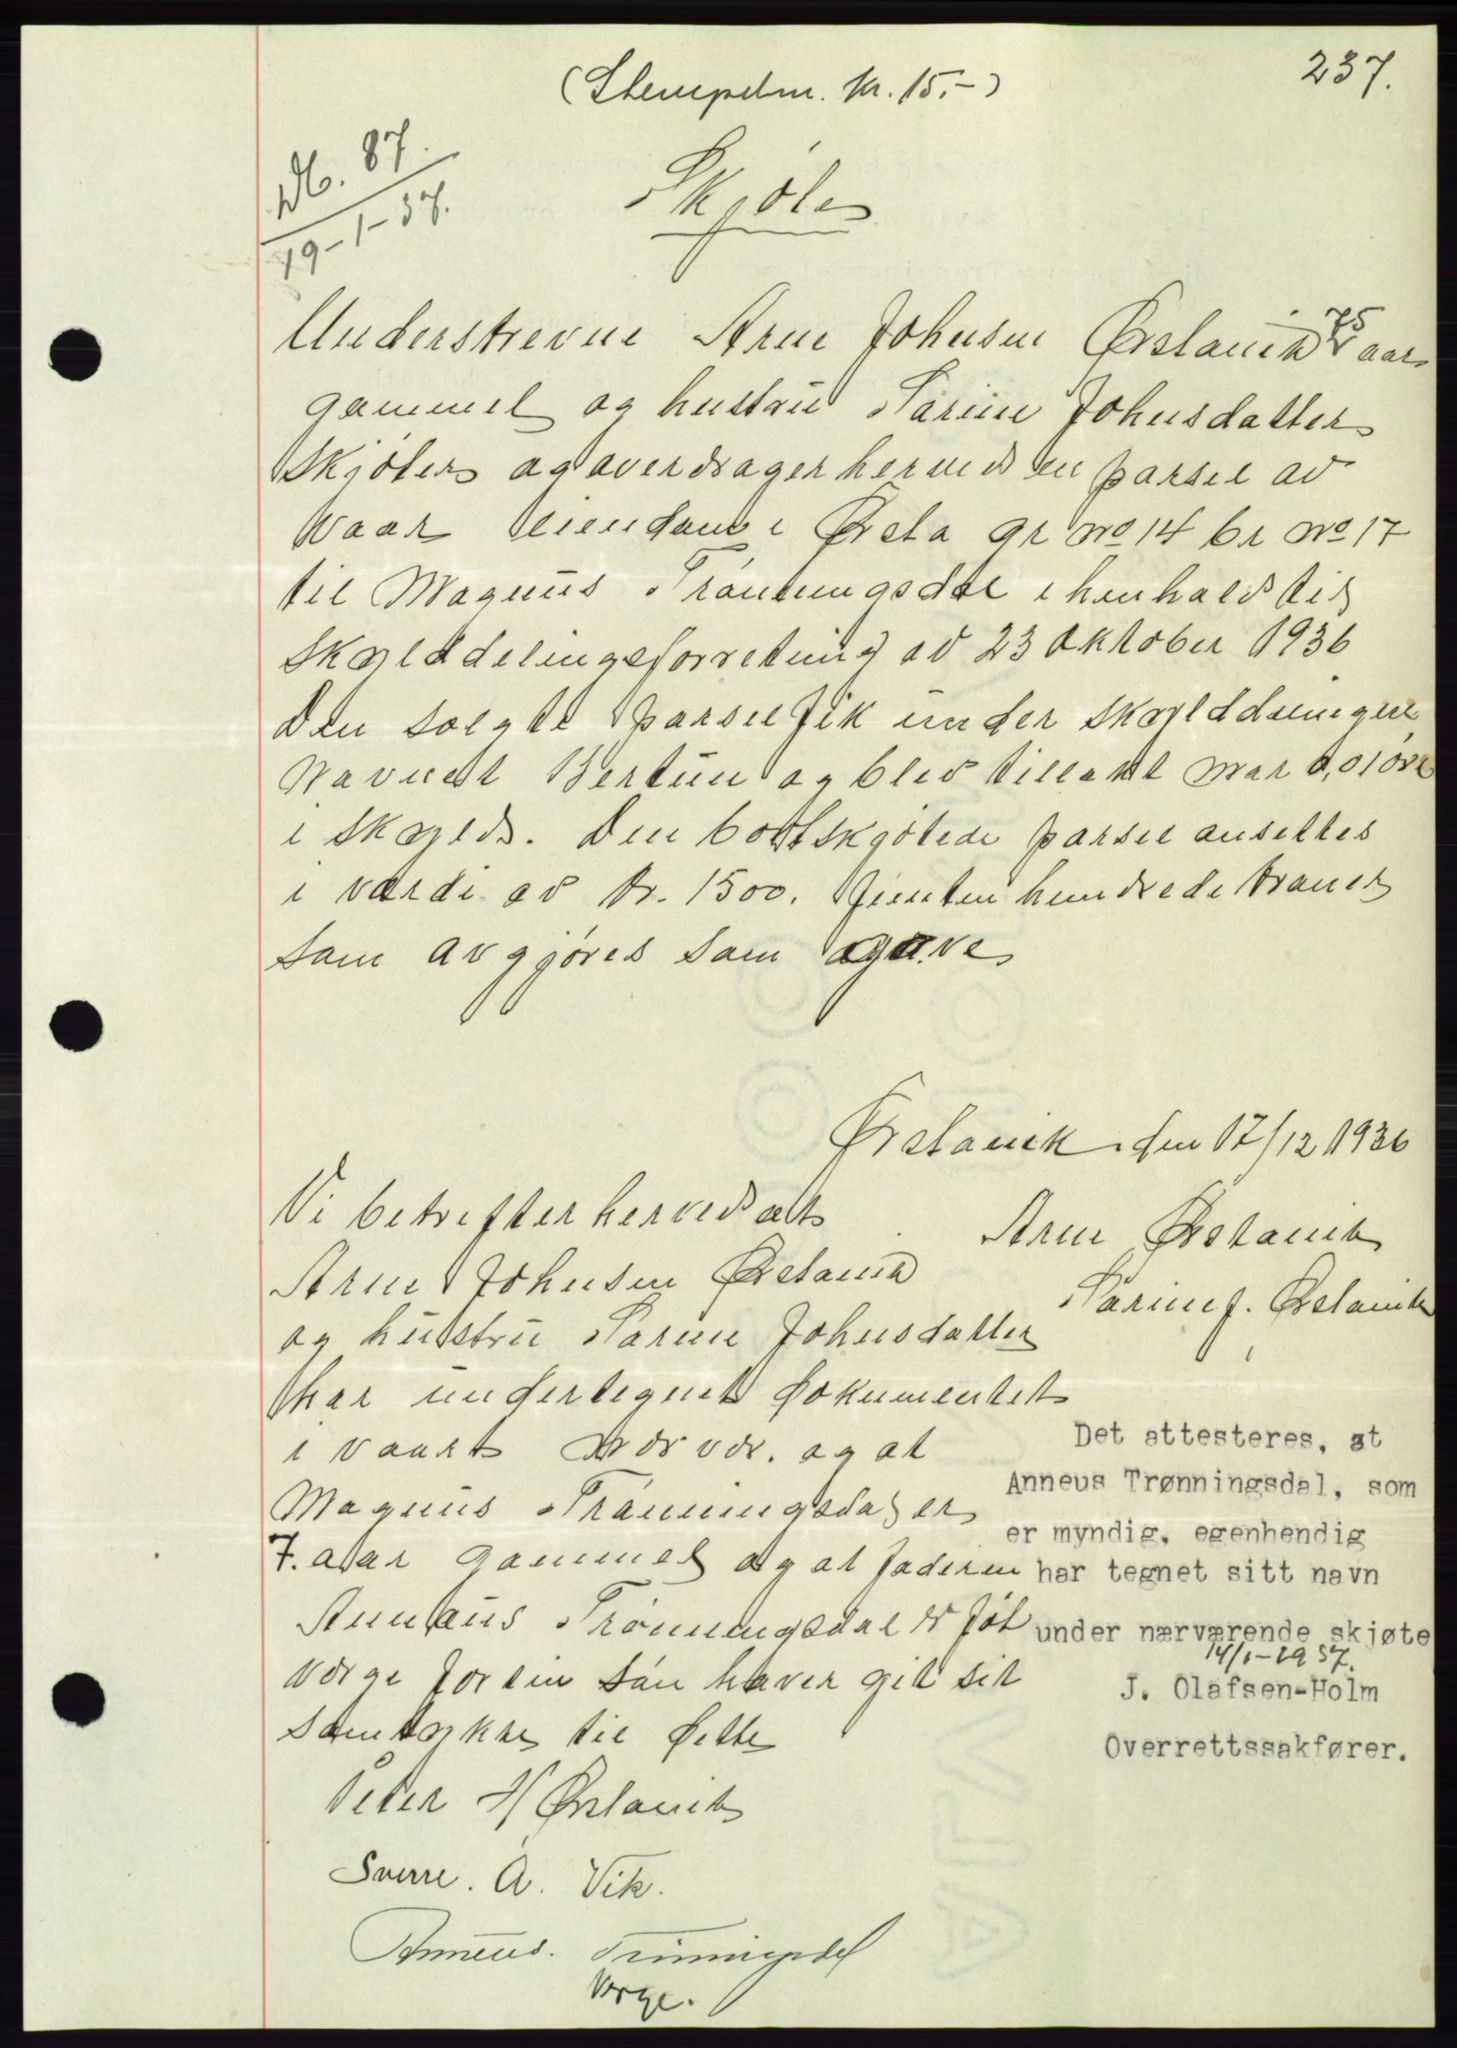 237.
(Stempelm. kr. 15.-)
Db. 87.
19-1-37.
Skjöte
Understrevne Arne Johnsen Ørstavik 75 aar
gammel og hustru Sarine Johnsdatter
skjöter og overdrager herved en parsel av
vaar eiendom i Ørsta gr no 14 br no 17
til Magnus Trönningsdal i henhold til
skylddelingsforretning av 23 oktober 1936
Den solgte parsel fik under skylddelingen
navnet Bertun og blev tillakt mar 0,01 öre
i skyld. Den bortskjötede parsel ansettes
i værdi av kr. 1500. femten hundrede kroner
som avgjöres som gave
Ørstavik den 17/12 1936
Vi betrefter herved at
Arne Ørstavik
Arne Johnsen Ørstavik
Sarine J. Ørstavik
og hustru Sarine Johnsdatter
har undertegnet dokumentet
i vaart nærvær. og at
Magnus Trönningsdal er
7. aar gammel og at faderen
Annæus Trönningsdal er föt
værge for sin sön haver git sit
samtykke til dette
Det attesteres, at
Anneus Trønningsdal, som
er myndig, egenhendig
har tegnet sitt navn
under nærværende skjøte
14/1-1937.
J. Olafsen-Holm
Overrettssakfører.
Peter H Ørstavik
Sverre. A. Vik.
Anneus. Trönningsdal
Verge.